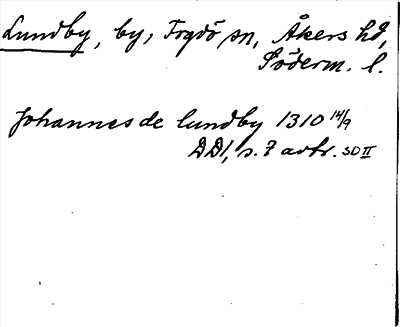 Lundby, by, Fogdö sn, Åkers hd,
Söderm. l.
Johannes de lundby 1310 14/9
DD1, s. 7 avtr. SD II